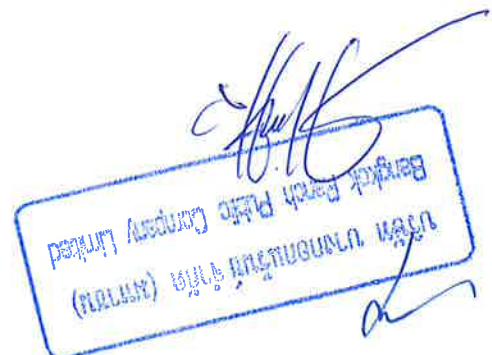 บริษัท บางกอกแร้นช์ จำกัด (มหาชน)
Bangkok Ranch Public Company Limited